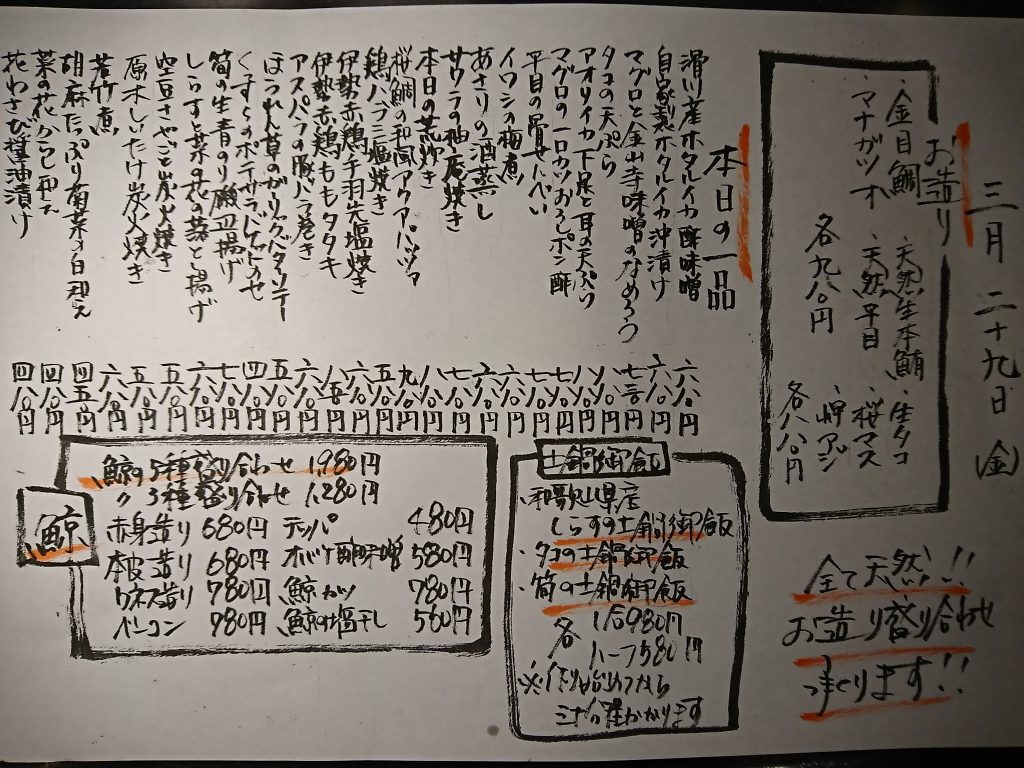 三月二十九日(金)
お造り
・金目鯛 ・天然生本鮪 ・生タコ
・マナガツオ ・天然平目 ・桜マス
・岬アジ
各九八〇円
各八八〇円
全て天然!!
お造り盛り合わせ
つくります!!
本日の一品
滑川産ホタルイカ酢味噌 六八〇円
自家製ホタルイカ沖漬け 六八〇円
マグロと金山寺味噌のなめろう
タコの天ぷら 八八〇円
アオリイカ下足と耳の天ぷら 八八〇円
マグロの一口カツおろしポン酢 七八〇円
平目の骨せんべい
イワシの梅煮 六八〇円
あさりの酒蒸し 六八〇円
サワラの柚庵焼き 七八〇円
本日の荒炊き 八八〇円
桜鯛の和風アクアパッツァ 九八〇円
鶏ハラミ塩焼き 五八〇円
伊勢赤鶏手羽先塩焼き 六八〇円
伊勢赤鶏ももタタキ
アスパラの豚バラ巻き 六八〇円
ほうれん草のガリックバターソテー 五八〇円
くずし豆
筍の生青のり磯辺揚げ 七八〇円
しらすと菜の花の落とし揚げ 六八〇円
空豆さやごと炭火焼き 五八〇円
原木しいたけ炭火焼き 五八〇円
若竹煮 六八〇円
胡麻たっぷり菊菜の白和え 四五〇円
菜の花からし和え 四八〇円
花わさび醤油漬け 四八〇円
土鍋御飯
・和歌山県産
しらすの土鍋御飯
・タコの土鍋御飯
・筍の土鍋御飯
各 1合980円
ハーフ580円
※作り始めてから
三十分程かかります
鯨
鯨の5種盛り合わせ 1,980円
〃 3種盛り合わせ 1,280円
赤身造り 680円 テッパ 480円
本皮造り 680円 オバケ酢味噌 580円
ウネス造り 780円 鯨カツ 780円
ベーコン 980円 鯨の塩干し 580円